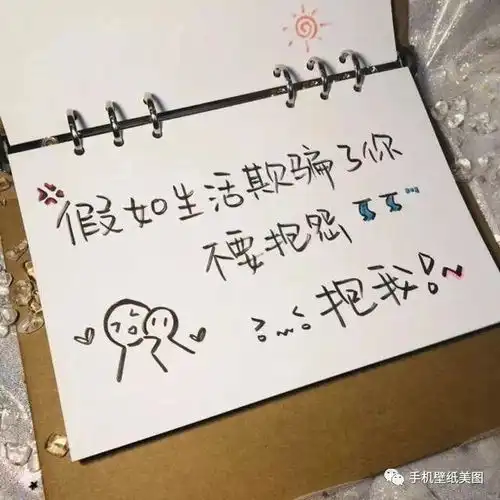 假如生活欺骗了你
不要抱怨
抱我!~
手机壁纸美图